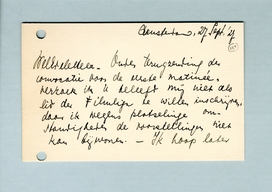 Amsterdam, 27 Sept. '27
Onder terugzending der
convocatie voor de eerste matinée,
verzoek ik U beleefd mij niet als
lid der Filmliga te willen inschrijven,
daar ik wegens plotselinge om-
standigheden de voorstellingen niet
kan bijwonen. — Ik hoop later